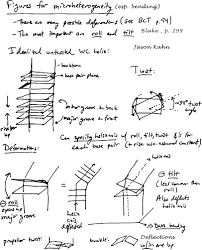 Figures for microheterogeneity (esp. bending)
- There are many possible deformations (see BCT p.94)
- The most important are roll and tilt
Blake, p. 299
Jason Kahn
Idealized untwisted WC helix:
backbone
base pair plane
Twist:
minor groove in back
major groove in front
twist angle
Can specify helix axis w/ roll, tilt, twist for each base pair (+ rise ~ constant)
Deformations:
helix axis
⊕ roll
opens up major groove
=
helix axis deflected
⊕ tilt
(less common than roll)
Also deflects helix axis
⇒ DNA bending
propeller twist:
buckle:
Deflections
are up